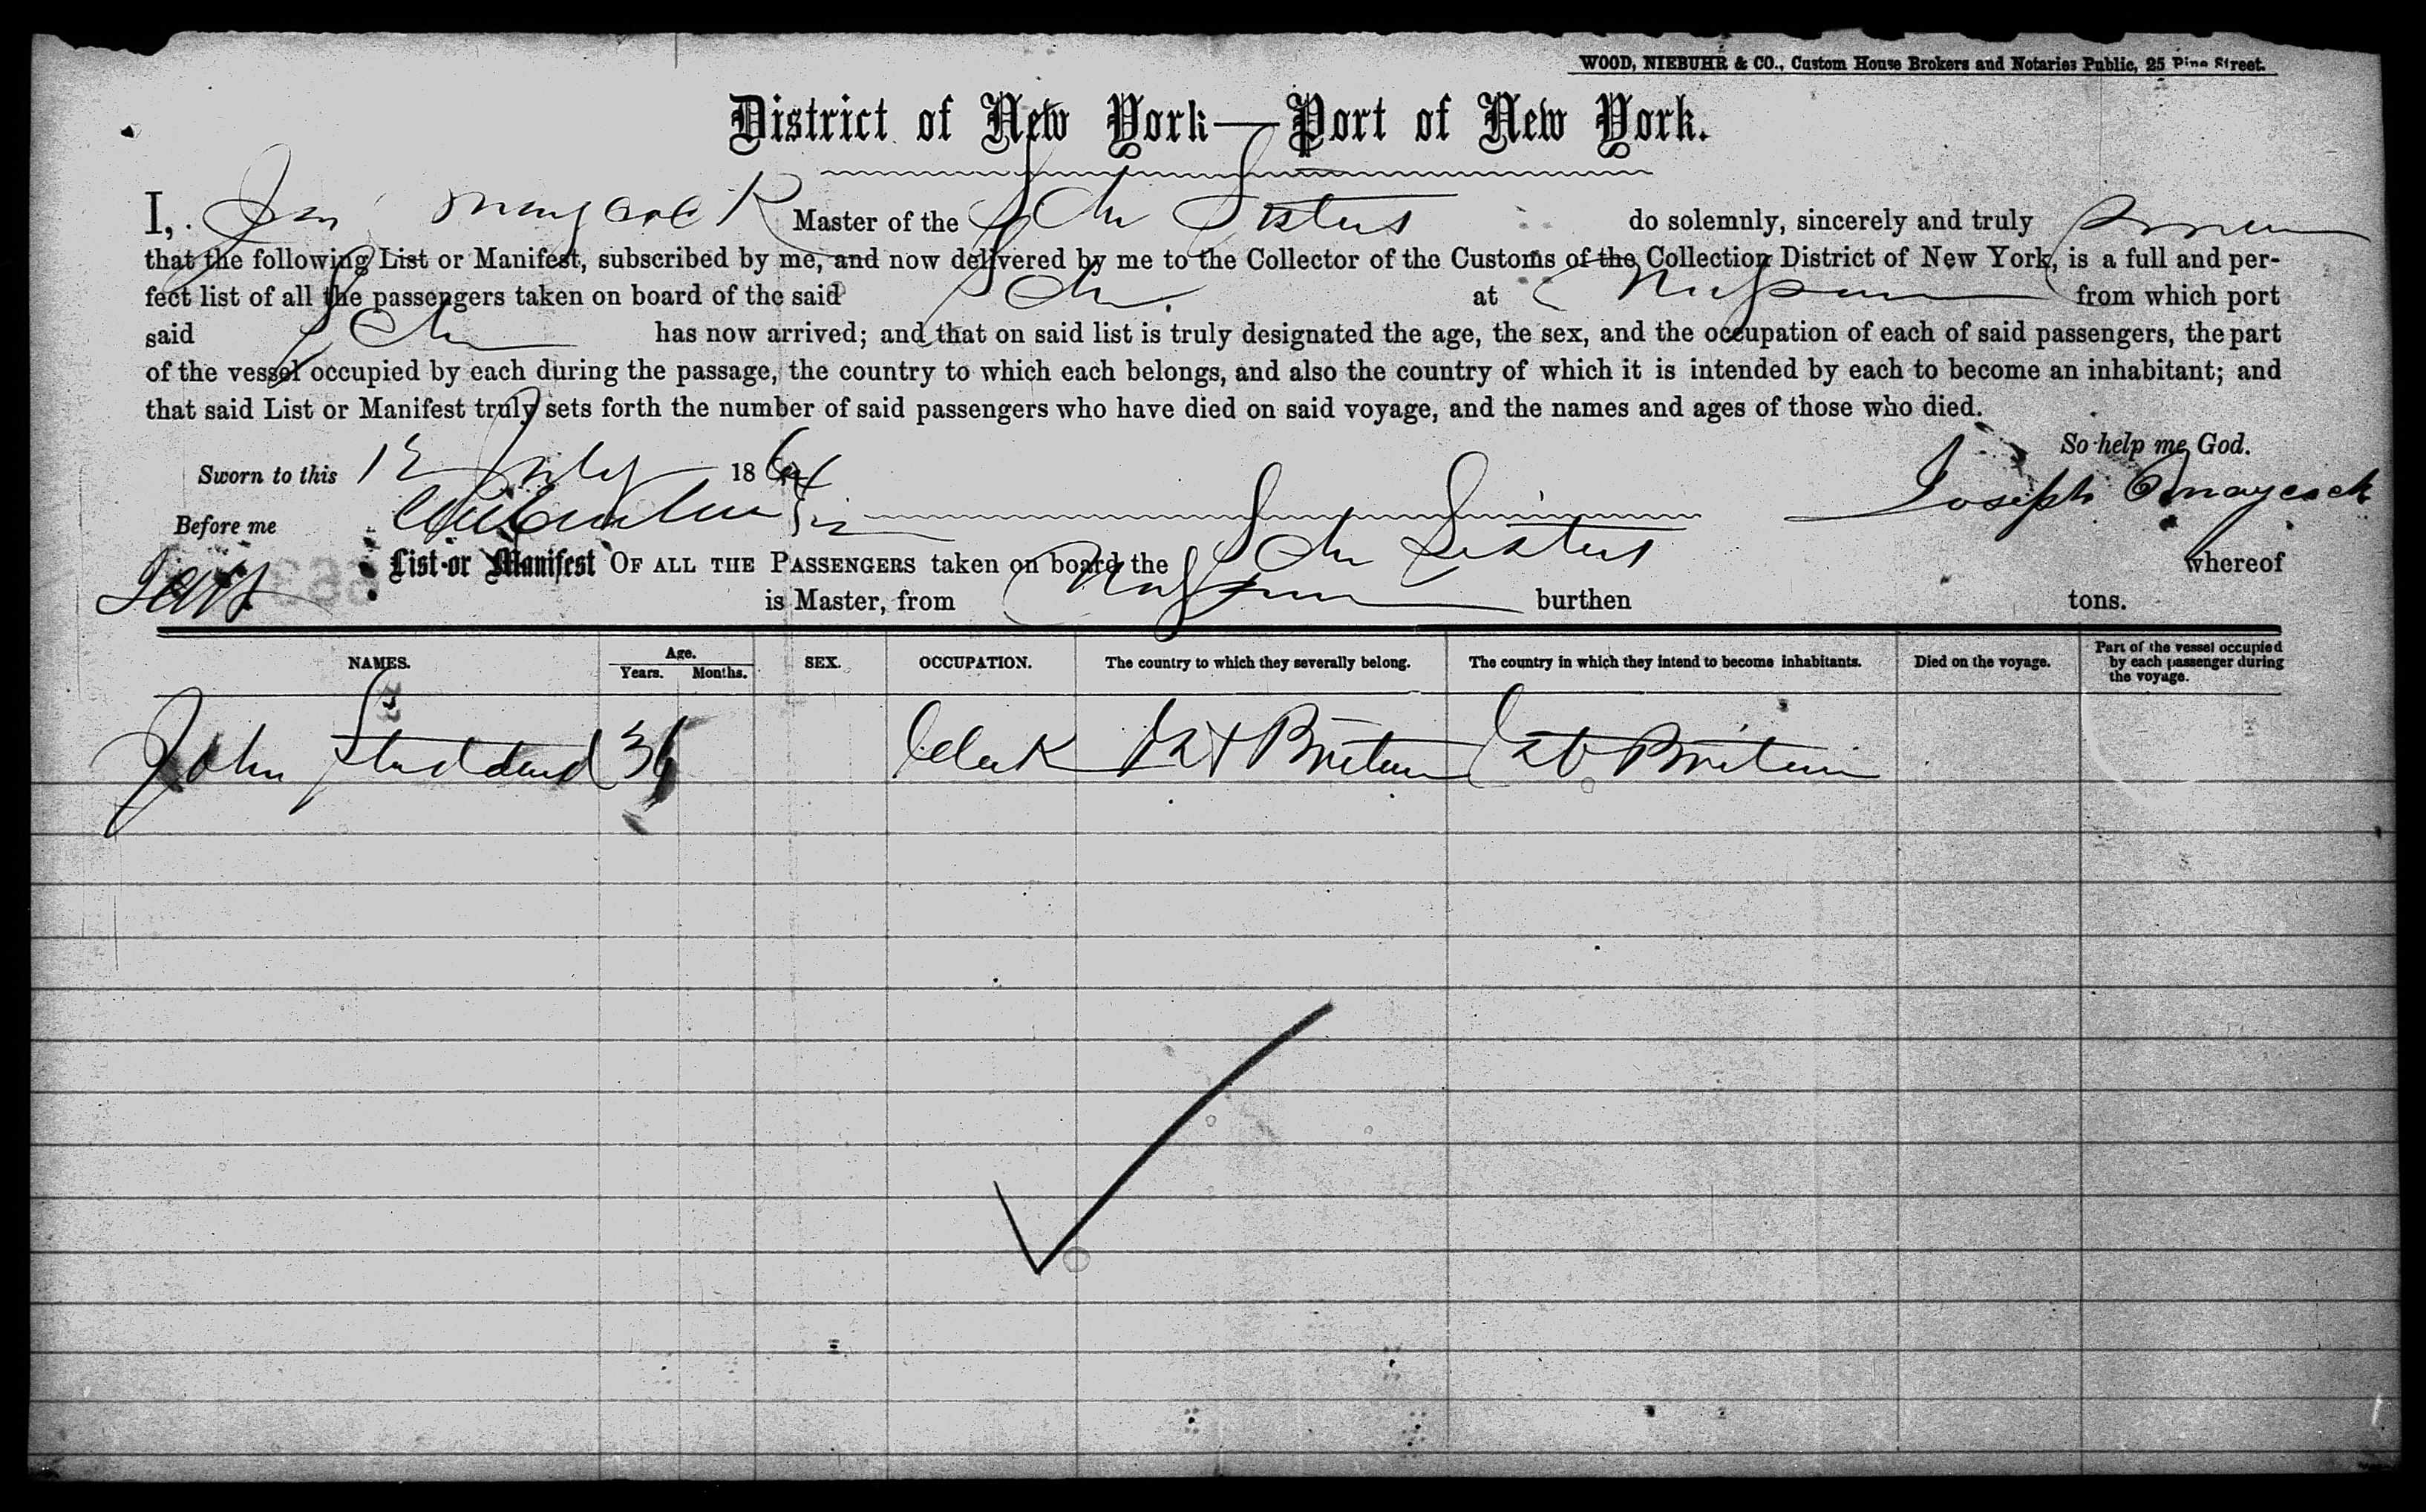 WOOD, NIEBUHR & CO., Custom House Brokers and Notaries Public, 25 Pine Street.
District of New York—Port of New York.
I, Maycock Master of the Schr Sisters do solemnly, sincerely and truly swear
that the following List or Manifest, subscribed by me, and now delivered by me to the Collector of the Customs of the Collection District of New York, is a full and per-
fect list of all the passengers taken on board of the said Schr. at from which port
said Schr has now arrived; and that on said list is truly designated the age, the sex, and the occupation of each of said passengers, the part
of the vessel occupied by each during the passage, the country to which each belongs, and also the country of which it is intended by each to become an inhabitant; and
that said List or Manifest truly sets forth the number of said passengers who have died on said voyage, and the names and ages of those who died.
So help me God.
Sworn to this 12 July 1864
Joseph Maycock
Before me
List or Manifest OF ALL THE PASSENGERS taken on board the Schr Sisters whereof
is Master, from burthen tons.
NAMES. Age. Years. Months. SEX. OCCUPATION. The country to which they severally belong. The country in which they intend to become inhabitants. Died on the voyage. Part of the vessel occupied by each passenger during the voyage.
John Studdard 36 Clerk Gt Britain Gt Britain